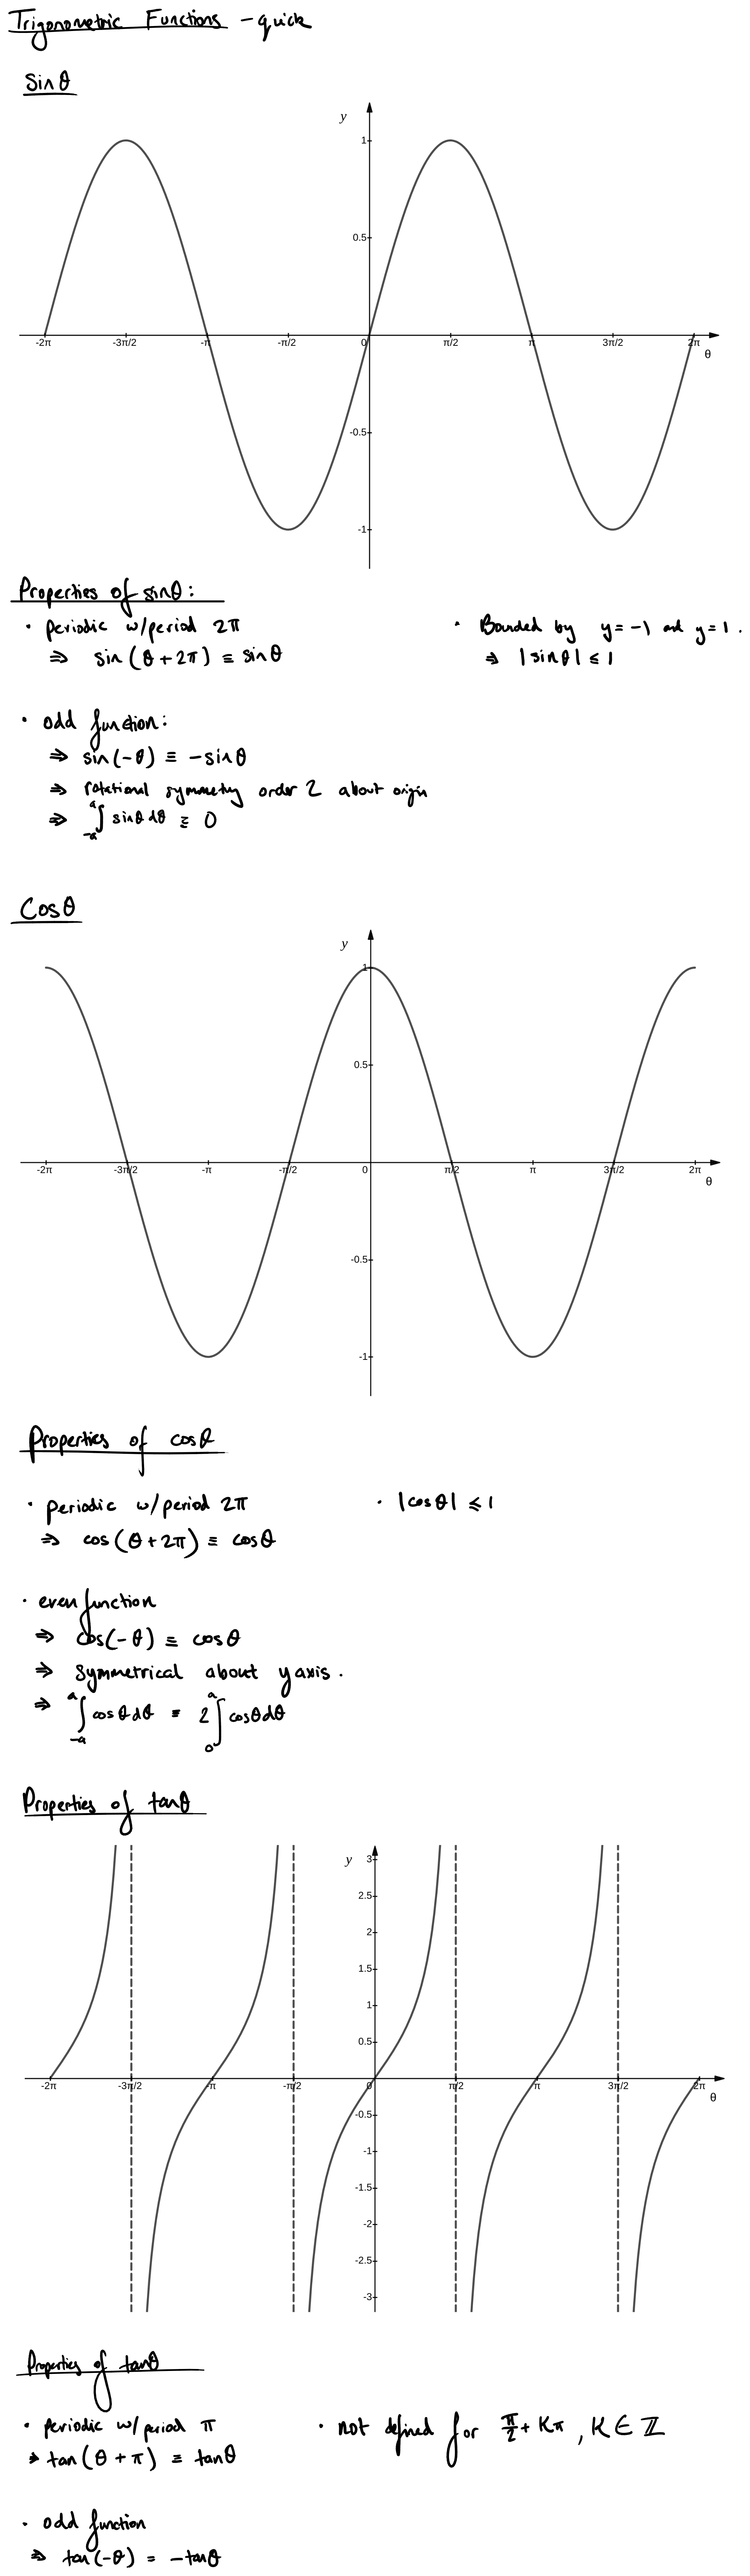 Trigonometric Functions - quick
sinθ
y
1
0.5
-2π -3π/2 -π -π/2 0 π/2 π 3π/2 2π
θ
-0.5
-1
Properties of sinθ:
• periodic w/period 2π
⇒ sin(θ+2π) ≡ sinθ
• Bounded by y=-1 and y=1.
⇒ |sinθ| ≤ 1
• odd function:
⇒ sin(-θ) ≡ -sinθ
⇒ rotational symmetry order 2 about origin
⇒ ∫_{-a}^{a} sinθ dθ ≡ 0
Cosθ
y
1
0.5
-2π -3π/2 -π -π/2 0 π/2 π 3π/2 2π
θ
-0.5
-1
Properties of cosθ
• periodic w/period 2π
⇒ cos(θ+2π) ≡ cosθ
• |cosθ| ≤ 1
• even function
⇒ cos(-θ) ≡ cosθ
⇒ symmetrical about y axis.
⇒ ∫_{-a}^{a} cosθdθ ≡ 2∫_{0}^{a} cosθdθ
Properties of tanθ
y
3
2.5
2
1.5
1
0.5
-2π -3π/2 -π -π/2 0 π/2 π 3π/2 2π
θ
-0.5
-1
-1.5
-2
-2.5
-3
Properties of tanθ
• periodic w/period π
⇒ tan(θ+π) ≡ tanθ
• not defined for π/2 + Kπ, K ∈ ℤ
• odd function
⇒ tan(-θ) = -tanθ